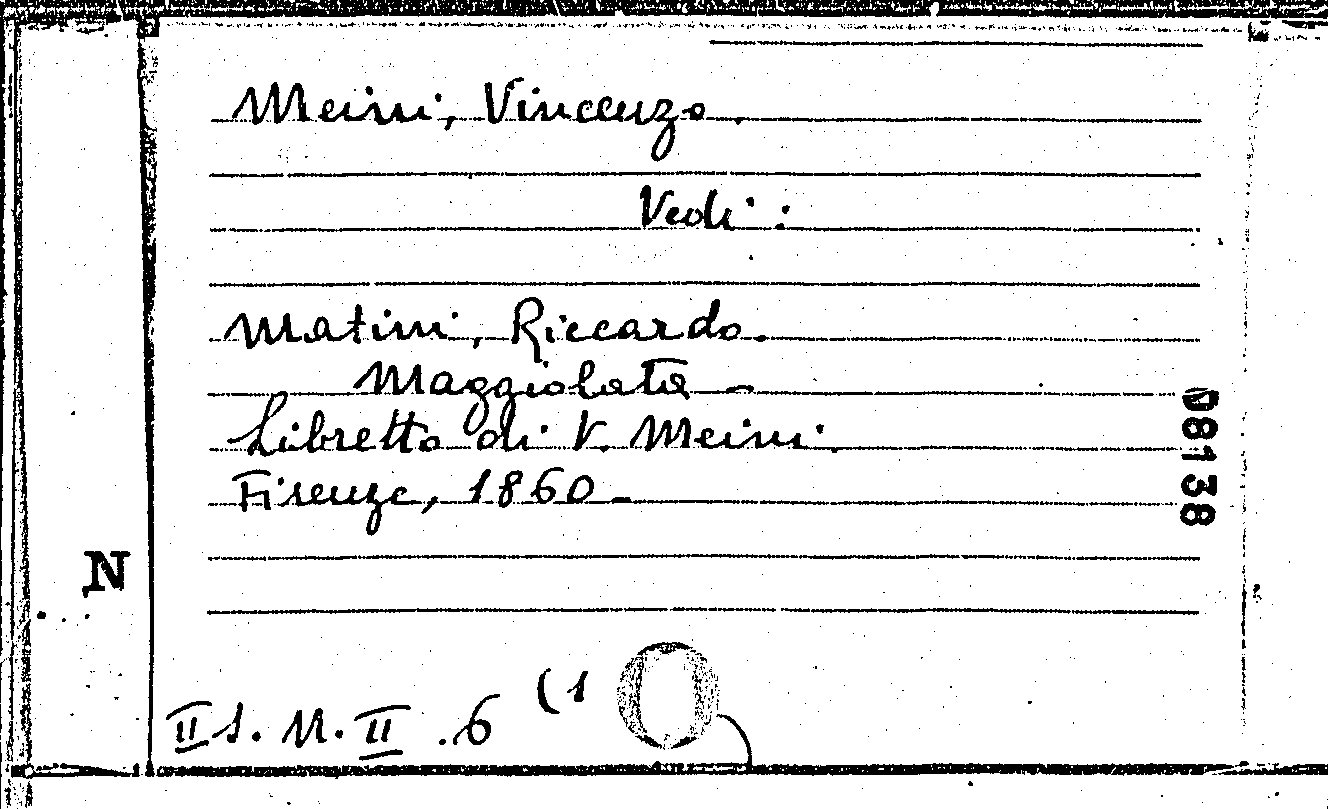 Meini, Vincenzo.
Vedi:
Matini, Riccardo.
Maggiolata -
Libretto di V. Meini.
Firenze, 1860 -
08138
N
II S. M. II .6 (1